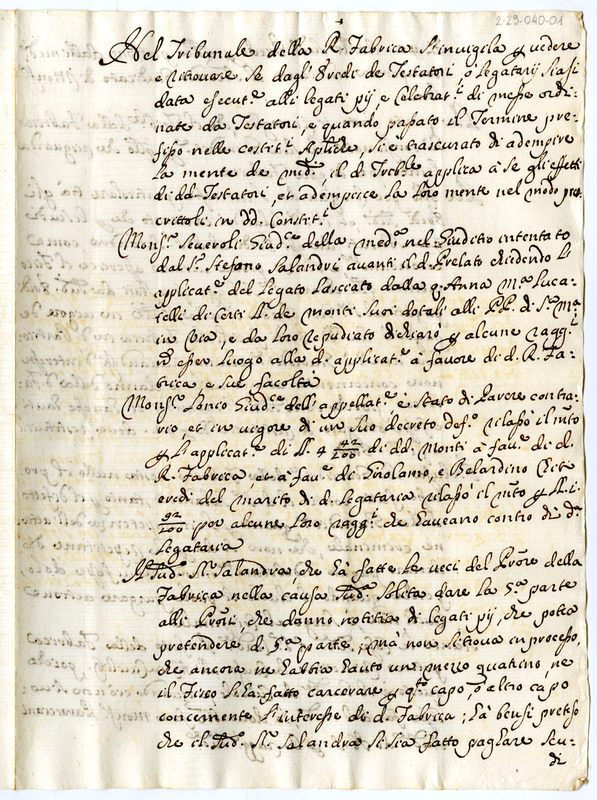 2-29-040-01
Nel Tribunale della R. Fabrica s'invigila p vedere
e ritrovare se dagl'Eredi de Testatori, o legatarij siasi
data esecut.e alli legati pij, e celebrat.e di messe ordi:
nate da Testatori, e quando passato il Termine pre:
fisso nelle costit.i Aplice, si è trascurato di adempire
la mente de med.i il d. Trib.le applica à se gl'effetti
di dd. Testatori, et adempisce la loro mente nel modo pres
crittoli in dd. Constit.i
Mons.r Severoli Giud.ce della med.a nel Giuditio intentato
dal S.r Stefano Salandri avanti il d. Prelato chiedendo l'
applicat.e del Legato lasciato dalla q. Anna M.a Luca:
telli di certi LL. de monti suoi dotali alli PP. di S. M.a
in Via, e da loro repudiato dichiarò p alcune ragg.i
esser luogo alla d. applicat.e à favore di d. R. Fa:
brica, e sue facoltà
Mons.r Ponio Giud.ce dell'appellat.e è stato di parere contra:
rio et in vigore di un suo decreto def.o rilassò il mto
p l'applicat.e di LL. 4 42/100 di dd. Monti à fav.e di d.
R. Fabrica et à fav.e di Girolamo, e Belardino
eredi del marito di d. legataria rilassò il mto p LL. i.
92/100 por alcune loro ragg.i che haveano contro di d.a
legataria
Al Sud. S.r Salandra che hà fatte le veci del Prore della
Fabrica nella causa Sud. solita dare la 5.a parte
alli Prori, che danno notitia di legati pij, che potea
pretendere d. 5.a parte, mà non si trova in processo,
che ancora ne habbia hauto un mezzo quatrino, ne
il Fisco l'hà fatto carcerare p q.to capo, ò altro capo
concernente l'interesse di d. Fabrica; hà bensi preteso
che il Sud. S.r Salandra si sia fatto pagare scu:
di